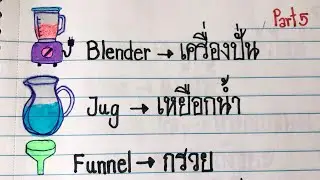 Part 5
Blender → เครื่องปั่น
Jug → เหยือกน้ำ
Funnel → กรวย